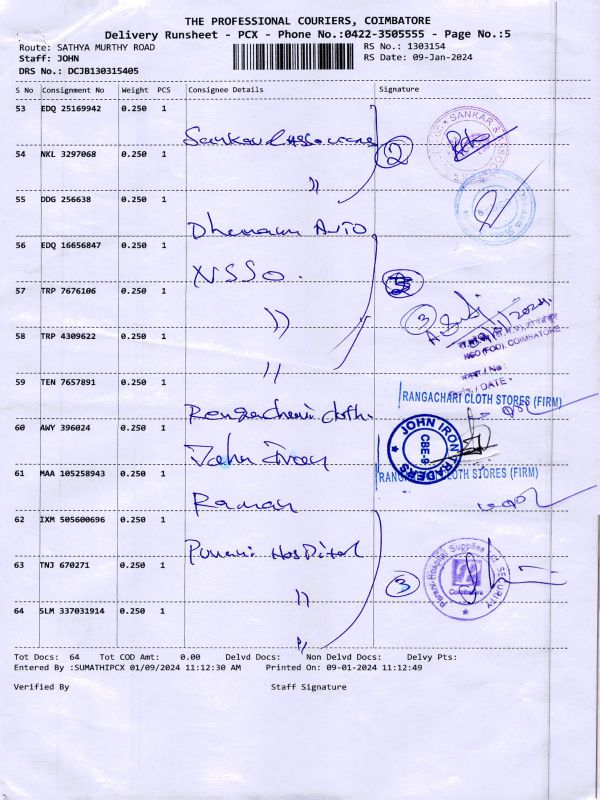 THE PROFESSIONAL COURIERS, COIMBATORE
Delivery Runsheet - PCX - Phone No.:0422-3505555 - Page No.:5
Route: SATHYA MURTHY ROAD
RS No.: 1303154
Staff: JOHN
RS Date: 09-Jan-2024
DRS No.: DCJB130315405
S No Consignment No Weight PCS Consignee Details Signature
53 EDQ 25169942 0.250 1
SANKAR &
2
54 NKL 3297068 0.250 1
"
55 DDG 256638 0.250 1
Auto
56 EDQ 16656847 0.250 1
NSSO.
57 TRP 7676106 0.250 1
"
3
NSO (FOD), COIMBATORE
58 TRP 4309622 0.250 1
"
/ No
/ DATE
59 TEN 7657891 0.250 1
RANGACHARI CLOTH STORES (FIRM)
Rangachari cloth.
60 AWY 396024 0.250 1
JOHN IRON TRADERS
CBE-9
John Iron
61 MAA 105258943 0.250 1
RANGACHARI CLOTH STORES (FIRM)
Raman
62 IXM 505600696 0.250 1
Hospital
63 TNJ 670271 0.250 1
"
3
SECURITY
Coimbatore
64 SLM 337031914 0.250 1
"
Tot Docs: 64 Tot COD Amt: 0.00 Delvd Docs: Non Delvd Docs: Delvy Pts:
Entered By :SUMATHIPCX 01/09/2024 11:12:30 AM Printed On: 09-01-2024 11:12:49
Verified By Staff Signature